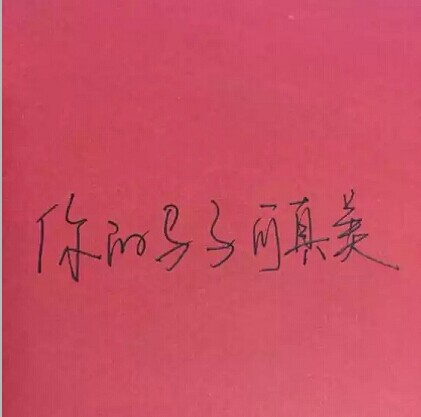 你的子可真美